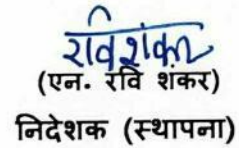 रवि शंकर
(एन. रवि शंकर)
निदेशक (स्थापना)